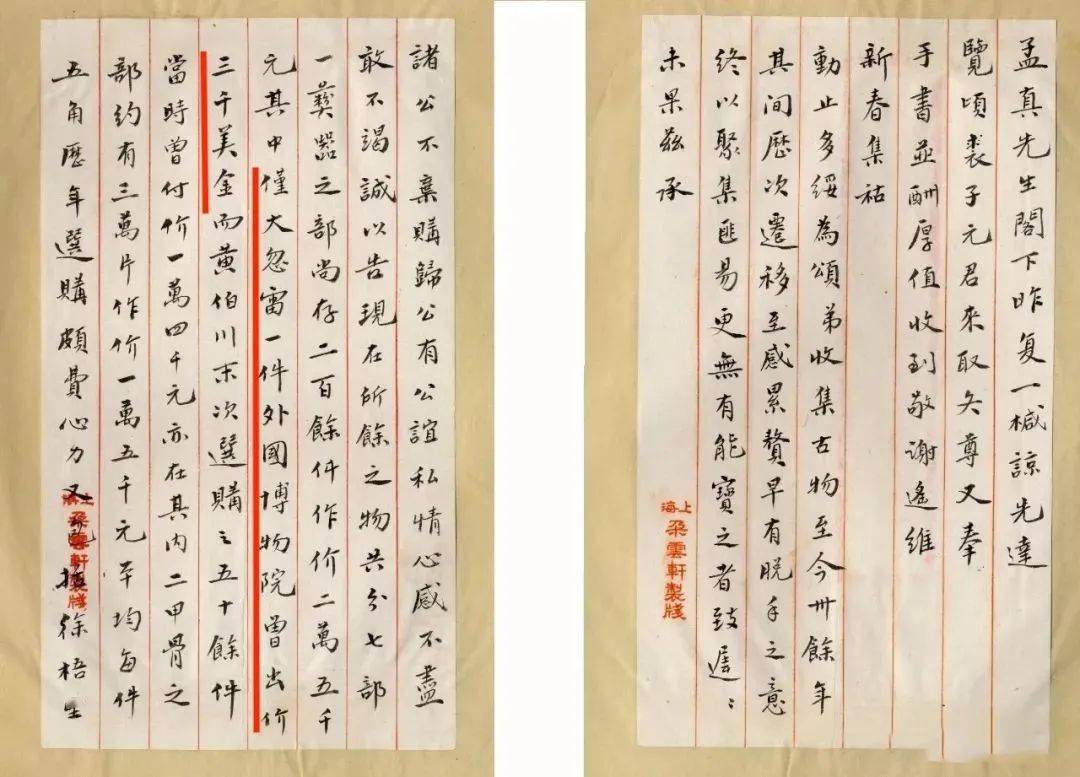 孟真先生閣下昨复一椷諒先達
覽頃裘子元君來取矢尊又奉
手書並酬厚值收到敬謝遙維
新春集祜
動止多綏為頌弟收集古物至今卅餘年
其間歷次遷移至感累贅早有脫手之意
終以聚集匪易更無有能寶之者致遲〻
未果茲承
上海
朵雲軒製牋
諸公不棄購歸公有公誼私情心感不盡
敢不竭誠以告現在所餘之物共分七部
一彝器之部尚存二百餘件作价二萬五千
元其中僅大忽雷一件外國博物院曾出价
三千美金而黃伯川末次選購之五十餘件
當時曾付价一萬四千元亦在其內二甲骨之
部約有三萬片作价一萬五千元平均每件
五角歷年選購頗費心力又徐梧生
上海
朵雲軒製牋